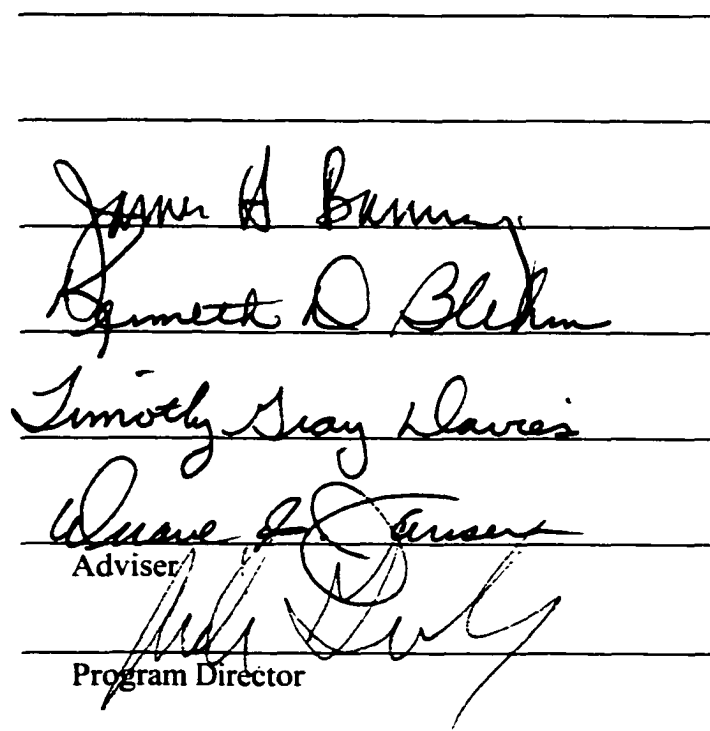 James H Banning
Kenneth D Blehm
Timothy Gray Davies
Duane J Jansen
Adviser
Program Director